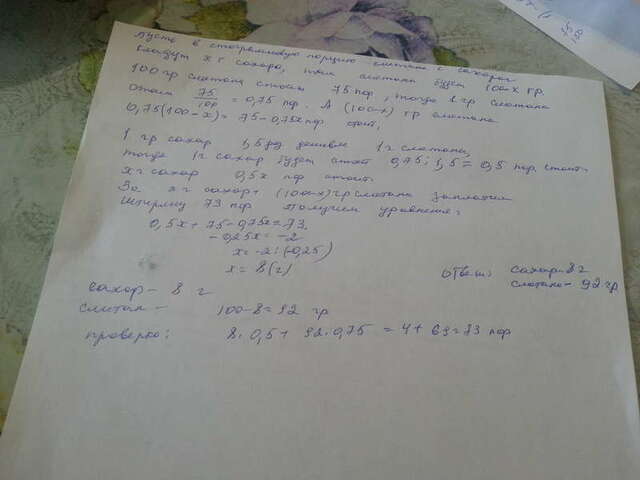 Пусть в стограммовую порцию сметаны с сахаром
кладут x г сахара, тогда сметана будет 100-x гр.
100 гр сметана стоит 75 пф, тогда 1 гр сметана
стоит 75/100 = 0,75 пф. А (100-x) гр сметана
0,75(100-x) = 75-0,75x пф стоит,
1 гр сахар 1,5 раз дешевле 1 г сметана,
тогда 1 г сахар будет стоит 0,75:1,5 = 0,5 пф. стоит.
x г сахар 0,5x пф стоит.
За x г сахар + (100-x) гр сметана заплатил
Штирлиц 73 пф. Получим уравнение:
0,5x + 75-0,75x=73.
-0,25x = -2
x = -2:(-0,25)
x = 8(г)
Ответ: сахар-8г
сметана-92 гр
сахар- 8 г
сметан- 100-8=92 гр
проверка: 8·0,5+ 92·0,75 = 4+69=73 пф